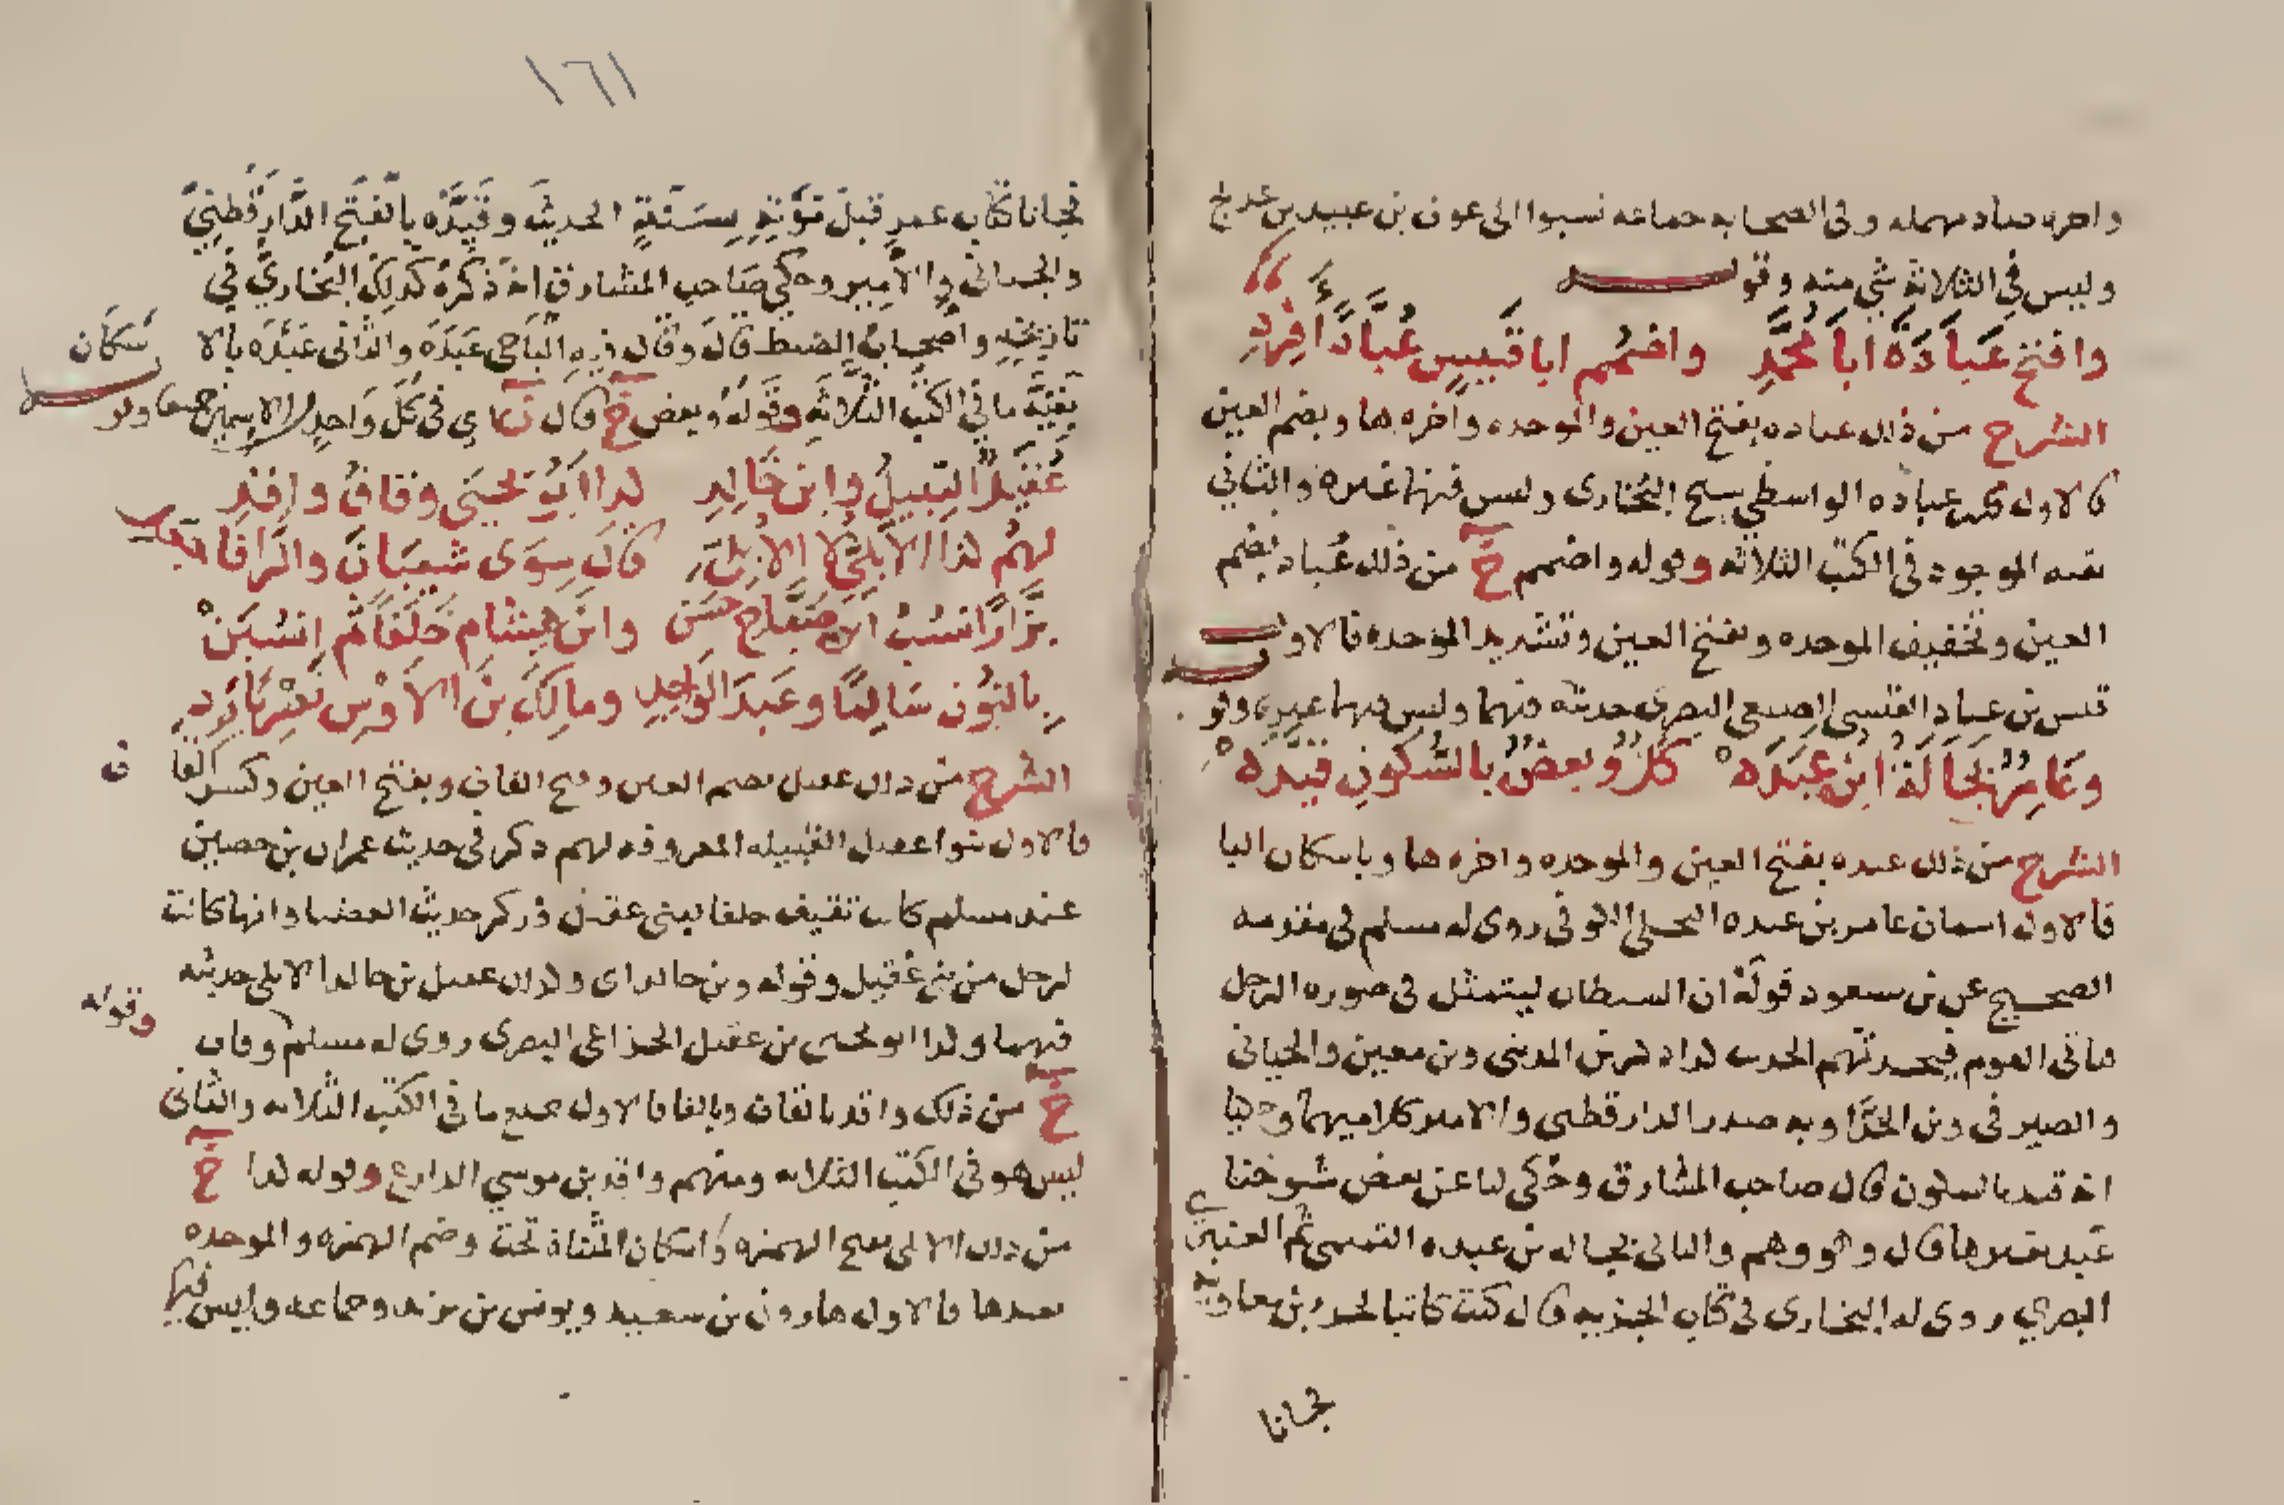 واخره صاد مهمله وفي الصحابه جماعه نسبوا الى عوف بن عبيد بن عويج
وليس في الثلاثة شي منه وقوله
وافتح عَبَادَةَ أبا مُحَمَّدِ واضمُم أبا قَيسٍ عُبَادًا أَفْرِدِ
الشرح من ذلك عباده بفتح العين والموحده واخره ها وبضم العين
فالاول محمد بن عباده الواسطي شيخ البخاري وليس فيهما غيره والثاني
بقيه الموجود في الكتب الثلاثه وقوله واضمم خ من ذلك عُباد بضم
العين وتخفيف الموحده وبفتح العين وتشديد الموحده فالاول
قيس بن عباد القيسي الضبعي البصري حديثه فيهما وليس فيهما غيره وقوله
وعَامِرٌ بَجَالَةُ ابْنُ عَبَدَهْ كُلٌّ وبعضٌ بالسُّكونِ قيَّدهْ
الشرح من ذلك عبده بفتح العين والموحده واخره ها وباسكان البا
فالاول اسمان عامر بن عبده البجلي الكوفي روى له مسلم في مقدمه
الصحيح عن بن مسعود قولَه ان الشيطان ليتمثل في صوره الرجل
فياتي القوم فيحدثهم الحديث كذا ذكره بن المديني وبن معين والجياني
والصيرفي وبن الحذَّا وبه صدر الدارقطني والامير كلاميهما وحكيا
انه قيد بالسكون قال صاحب المشارق وحكى لنا عن بعض شيوخنا
عَبد بغير ها قال وهو وهم والثاني بجاله بن عبده التميمي ثم العنبري
البصري روى له البخاري في كتاب الجزيه قال كنت كاتبا لجزء بن معاويه
فجاانا
١٦١
فجاانا كتاب عمر قبل مَوْتِهِ بِسَنَةٍ الحديثَ وقَيَّدَه بالفَتْحِ الدَّارقُطنيّ
والجياني والأمير وحكى صَاحب المشارق انه ذكرهُ كَذلِكَ البُخاريُّ في
تاريخِهِ واصحابُ الضبط قال وقال فيه الباجي عَبَدَه والثاني عَبْدَه بالاسكان
بَقيَّه ما في الكتب الثلاثَه وقَولُه وبعض خ قال ن اي في كُلِّ وَاحدٍ من الاسمين جميعا وقوله
عُقَيلٌ القَبيلُ وابن خَالِدِ كذا أبُو يَحيَى وقافُ واقِدِ
لهُم كذا الأَيْلِيُّ لا الأُبُلِّي قالَ سِوَى شَيبَانَ والرَّا فاجعل
بزَّارًا انسُبْ ابن صَبَّاحٍ حسَن وابن هِشَام خَلَفًا ثُمَّ انسُبَنْ
بالنون سَالِمًا وعَبدَ الوَاحِدِ ومالِكَ بنَ الأَوْسِ نَصْريًّا يَرِدِ
الشرح من ذلك عقيل بضم العين وفتح القاف وبفتح العين وكسر القاف
فالاول بنوا عقيل القبيله المعروفه لهم ذكر في حديث عمران بن حصين
عند مسلم كانت ثقيف حلفا لبني عقيل وذكر حديث العضبا وانها كانت
لرجل من بني عُقيل وقوله وبن خالد اي وكذلك عقيل بن خالد الايلي حديثه
فيهما وكذا ابو يحيى بن عقيل الخزاعي البصري روى له مسلم وقوله وقاف
خ من ذلك واقد بالقاف وبالفا فالاول جميع ما في الكتب الثلاثه والثاني
ليس هو في الكتب الثلاثه ومنهم وافد بن موسي الدارع وقوله كذا خ
من ذلك الايلي بفتح الهمزه واسكان المثناة تحت وضم الهمزه والموحده
بعدها فالاول هارون بن سعيد ويونس بن يزيد وجماعه وليس فيها